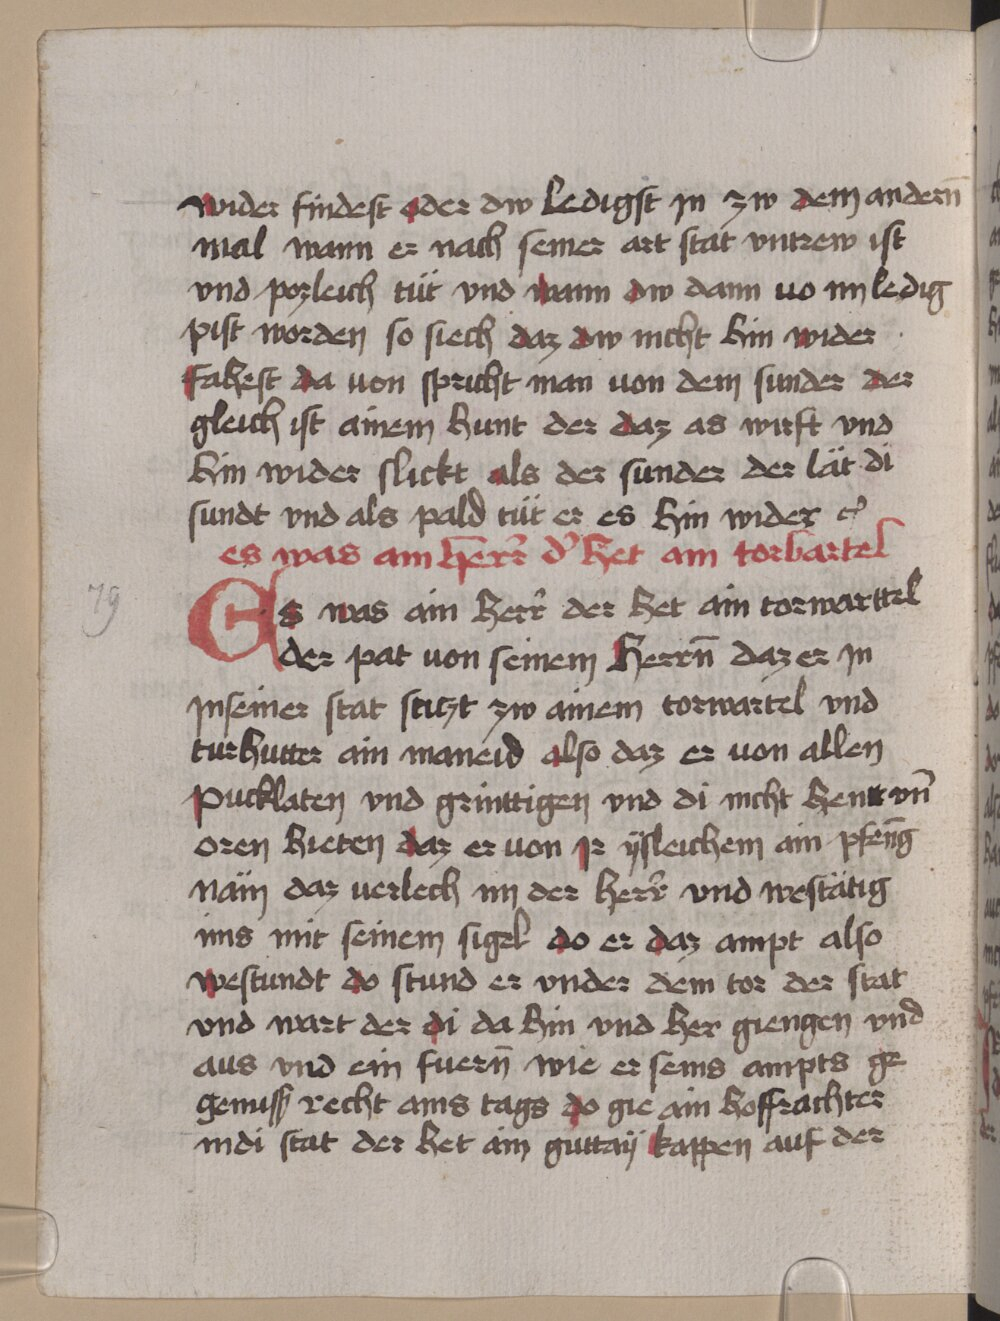 wider findest oder dw ledigst jn zw dem andern̄
mal wann er nach seiner art stät vntrew ist
vnd pozleich tüt vnd wann dw dann uo im ledig
pist worden so siech daz dw nicht hin wider
fahest da von spricht man von dem sunder der
gleich ist ainem hunt der daz as wirft vnd
hin wider slickt als der sunder der lät di
sundt vnd als pald tüt er es hin wider
es was ain herr̄ d' het ain torbartel
79
Es was ain herr̄ der het ain torwarttel
der pat von seinem herrn̄ daz er jn
jn seiner stat sticzt zw ainem torwartel vnd
turhutter ain maneid also daz er von allen
pucklaten vnd grinttigen vnd di nicht hentt vn̄
oren hieten daz er von jr yſleichem ain pfen̄g
näm daz verlech im der herr̄ vnd westätig
ims mit seinem sigel do er daz ampt also
westundt do stund er vnder dem tor der stat
vnd wart der di da hin vnd her giengen vnd
aus vnd ein fuern̄ wie er seins ampts ge
genuss recht ains tags do gie ain hoffrachter
in di stat der het ain guttaÿ kappen auf der